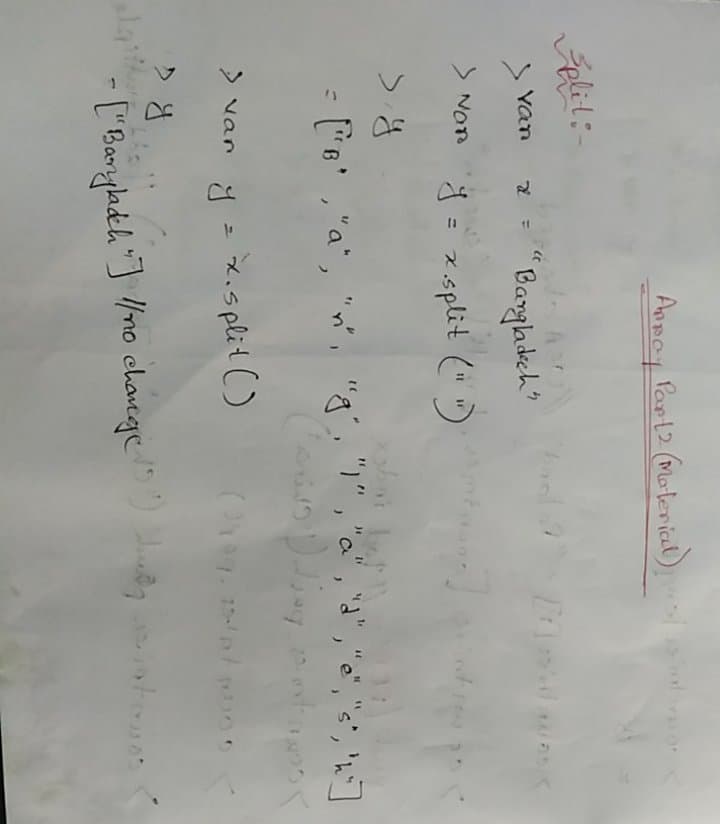 Array Part 2 (Material)
Split:-
> var x = "Bangladesh"
> var y = x.split ("")
> y
= ["B", "a", "n", "g", "l", "a", "d", "e", "s", "h"]
> var y = x.split()
> y
= ["Bangladesh"] //no change